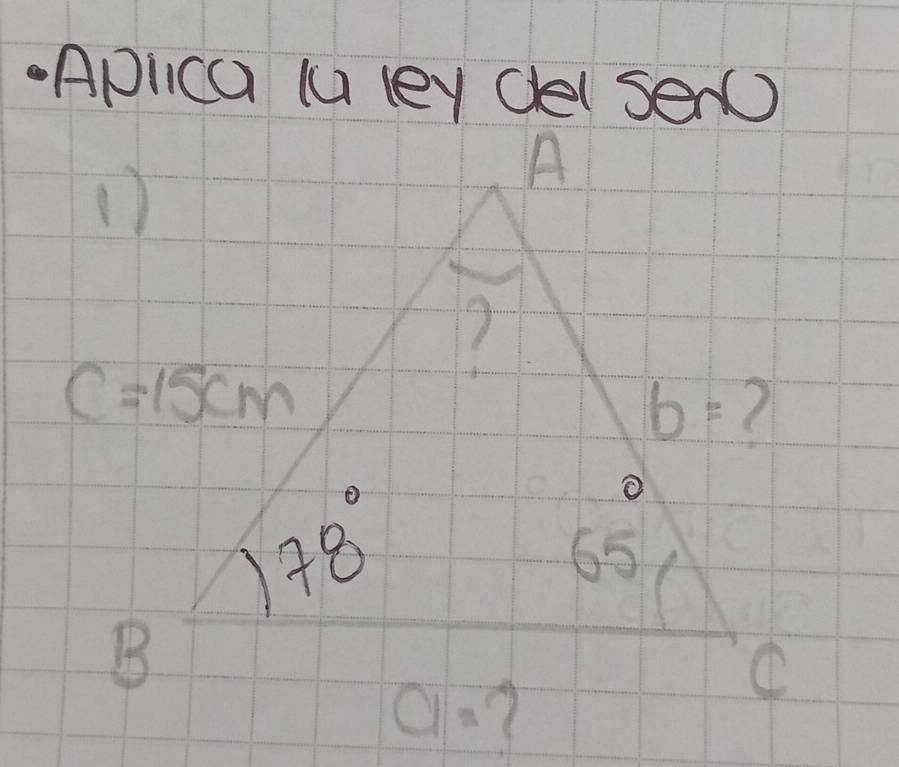 •Aplica la ley del seno
1)
A
?
C=15cm
b=?
78°
65°
B
C
a=?